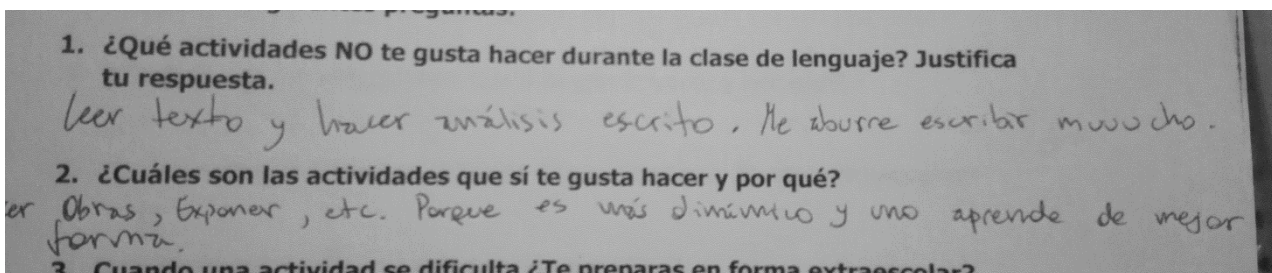 1. ¿Qué actividades NO te gusta hacer durante la clase de lenguaje? Justifica
tu respuesta.
leer texto y hacer análisis escrito. Me aburre escribir muuucho.
2. ¿Cuáles son las actividades que sí te gusta hacer y por qué?
er Obras, Exponer, etc. Porque es más dinámico y uno aprende de mejor
forma.
3. Cuando una actividad se dificulta ¿Te preparas en forma extraescolar?